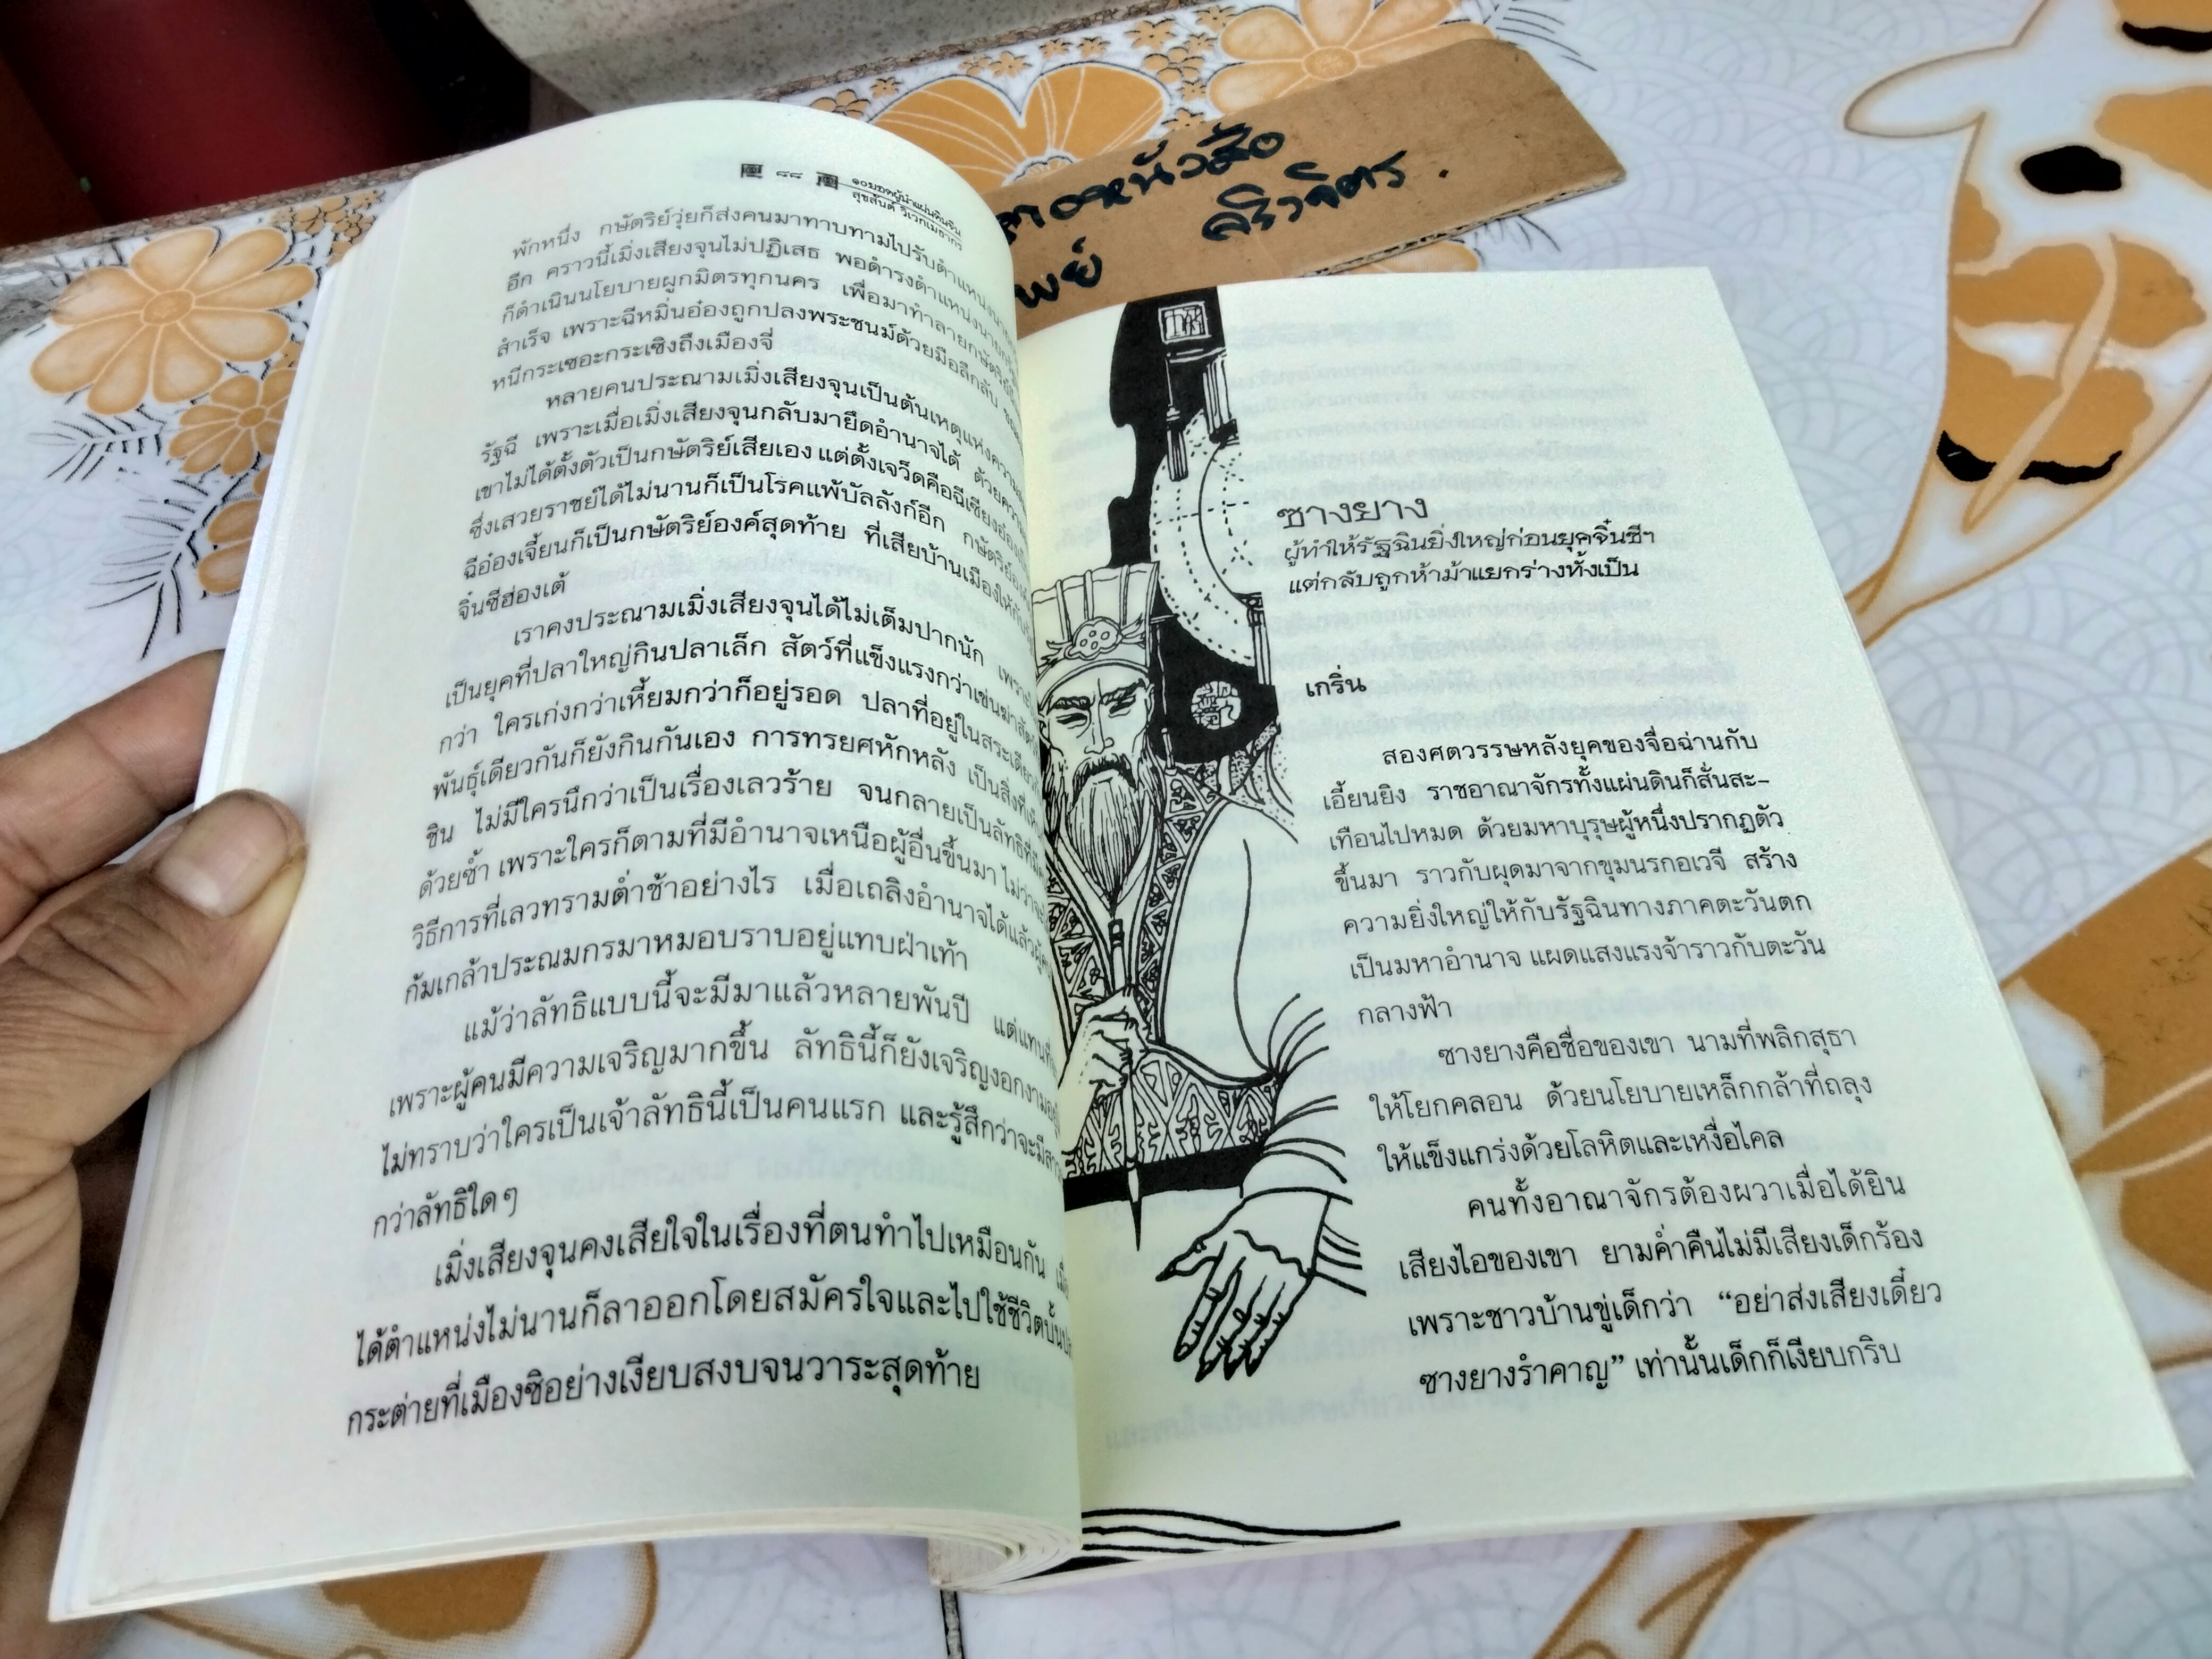 ๘๘ ๑๐ยอดผู้นำแผ่นดินจีน
สุขสันต์ วิเวกเมธากร
พักหนึ่ง กษัตริย์วุ่ยก็ส่งคนมาทาบทามไปรับตำแหน่ง
อีก คราวนี้เมิ่งเสียงจุนไม่ปฏิเสธ พอดำรงตำแหน่ง
ก็ดำเนินนโยบายผูกมิตรทุกนคร เพื่อมาทำลายกษัตริย์
สำเร็จ เพราะฉีหมิ่นอ๋องถูกปลงพระชนม์ด้วยมือลึกลับ
หนีกระเซอะกระเซิงถึงเมืองจี่
หลายคนประณามเมิ่งเสียงจุนเป็นต้นเหตุแห่งความ
รัฐฉี เพราะเมื่อเมิ่งเสียงจุนกลับมายึดอำนาจได้ ด้วยความ
เขาไม่ได้ตั้งตัวเป็นกษัตริย์เสียเอง แต่ตั้งเจว็ดคือฉีเซียงอ๋อง
ซึ่งเสวยราชย์ได้ไม่นานก็เป็นโรคแพ้บัลลังก์อีก กษัตริย์
ฉีอ๋องเจี้ยนก็เป็นกษัตริย์องค์สุดท้าย ที่เสียบ้านเมืองให้กับ
จิ๋นซีฮ่องเต้
เราคงประณามเมิ่งเสียงจุนได้ไม่เต็มปากนัก เพราะ
เป็นยุคที่ปลาใหญ่กินปลาเล็ก สัตว์ที่แข็งแรงกว่าเข่นฆ่าสัตว์
กว่า ใครเก่งกว่าเหี้ยมกว่าก็อยู่รอด ปลาที่อยู่ในสระเดียว
พันธุ์เดียวกันก็ยังกินกันเอง การทรยศหักหลัง เป็นสิ่งที่
ชิน ไม่มีใครนึกว่าเป็นเรื่องเลวร้าย จนกลายเป็นลัทธิที่
ด้วยซ้ำ เพราะใครก็ตามที่มีอำนาจเหนือผู้อื่นขึ้นมา ไม่ว่าจะ
วิธีการที่เลวทรามต่ำช้าอย่างไร เมื่อเถลิงอำนาจได้แล้ว
ก้มเกล้าประณมกรมาหมอบราบอยู่แทบฝ่าเท้า
แม้ว่าลัทธิแบบนี้จะมีมาแล้วหลายพันปี แต่แทนที่
เพราะผู้คนมีความเจริญมากขึ้น ลัทธินี้ก็ยังเจริญงอกงาม
ไม่ทราบว่าใครเป็นเจ้าลัทธินี้เป็นคนแรก และรู้สึกว่าจะมี
กว่าลัทธิใดๆ
เมิ่งเสียงจุนคงเสียใจในเรื่องที่ตนทำไปเหมือนกัน
ได้ตำแหน่งไม่นานก็ลาออกโดยสมัครใจและไปใช้ชีวิตบั้น
กระต่ายที่เมืองซิอย่างเงียบสงบจนวาระสุดท้าย
ซางยาง
ผู้ทำให้รัฐฉินยิ่งใหญ่ก่อนยุคจิ๋นซีฯ
แต่กลับถูกห้าม้าแยกร่างทั้งเป็น
เกริ่น
สองศตวรรษหลังยุคของจื่อฉ่านกับ
เอี้ยนยิง ราชอาณาจักรทั้งแผ่นดินก็สั่นสะ-
เทือนไปหมด ด้วยมหาบุรุษผู้หนึ่งปรากฏตัว
ขึ้นมา ราวกับผุดมาจากขุมนรกอเวจี สร้าง
ความยิ่งใหญ่ให้กับรัฐฉินทางภาคตะวันตก
เป็นมหาอำนาจ แผดแสงแรงจ้าราวกับตะวัน
กลางฟ้า
ซางยางคือชื่อของเขา นามที่พลิกสุธา
ให้โยกคลอน ด้วยนโยบายเหล็กกล้าที่ถลุง
ให้แข็งแกร่งด้วยโลหิตและเหงื่อไคล
คนทั้งอาณาจักรต้องผวาเมื่อได้ยิน
เสียงไอของเขา ยามค่ำคืนไม่มีเสียงเด็กร้อง
เพราะชาวบ้านขู่เด็กว่า “อย่าส่งเสียงเดี๋ยว
ซางยางรำคาญ” เท่านั้นเด็กก็เงียบกริบ